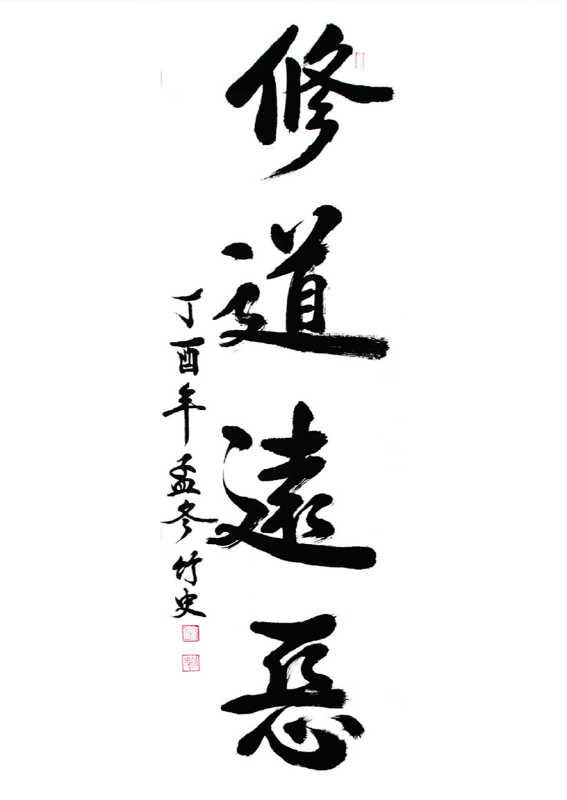 修道遠惡
丁酉年孟冬竹史